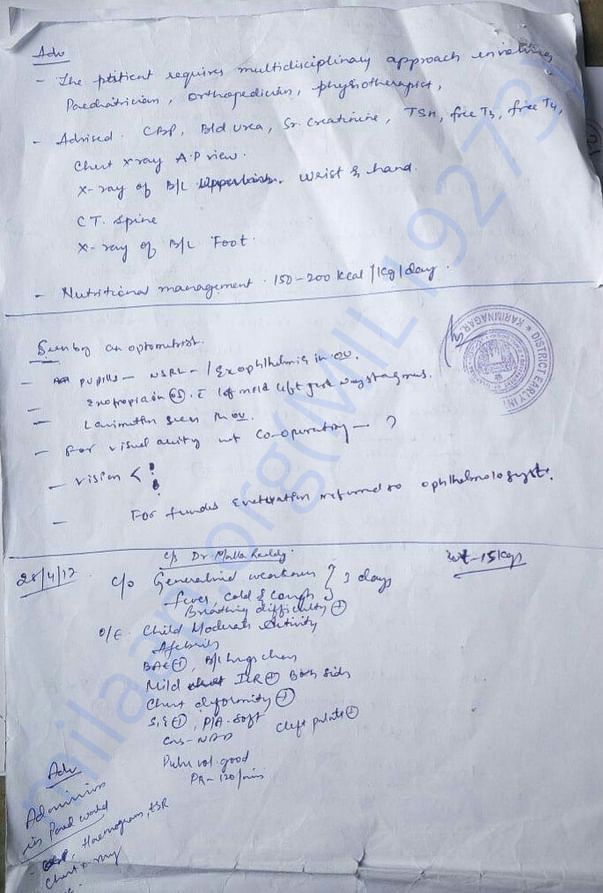 Adv
- The ptitient requires multidisciplinary approach involving
Paediatrician, orthopedician, physiotherapist,
- Advised. CBP, Bld urea, Sr. Creatinine, TSH, free T3, free T4,
Chest x ray A.P view.
X-ray of B/L wrist & hand.
CT. Spine
X-ray of B/L Foot.
- Nutritional management. 150-200 kcal/kg/day.
Seen by an optometrist.
- pupils - NSRL - / Exophthelmis in ou.
- Exotropia in mild left
- seen in ou.
- For visual acuity not co-operating - ?
- vision < !
- For fundus referred to ophthelmologyst.
DISTRICT EARLY IN
KARIMNAGAR
c/s Dr Malla Reddy.
wt - 15 kgs
28/4/17
c/o Generalised weakness
fever, cold & cough
3 days
Breathing difficulty (+)
O/E. Child Moderate Activity
Afebrile
BAE (+), B/L lungs clear
Mild ICR (+) Both sides
Chest deformity (+)
S1S2 (+), P/A - Soft
Cns - NAD
Cleft palate (+)
Pulse vol. good
PR - 120/min
Adv
Admission
in Paed ward
- Haemogram, ESR
Chest x-ray
milaap.org(MIL119273